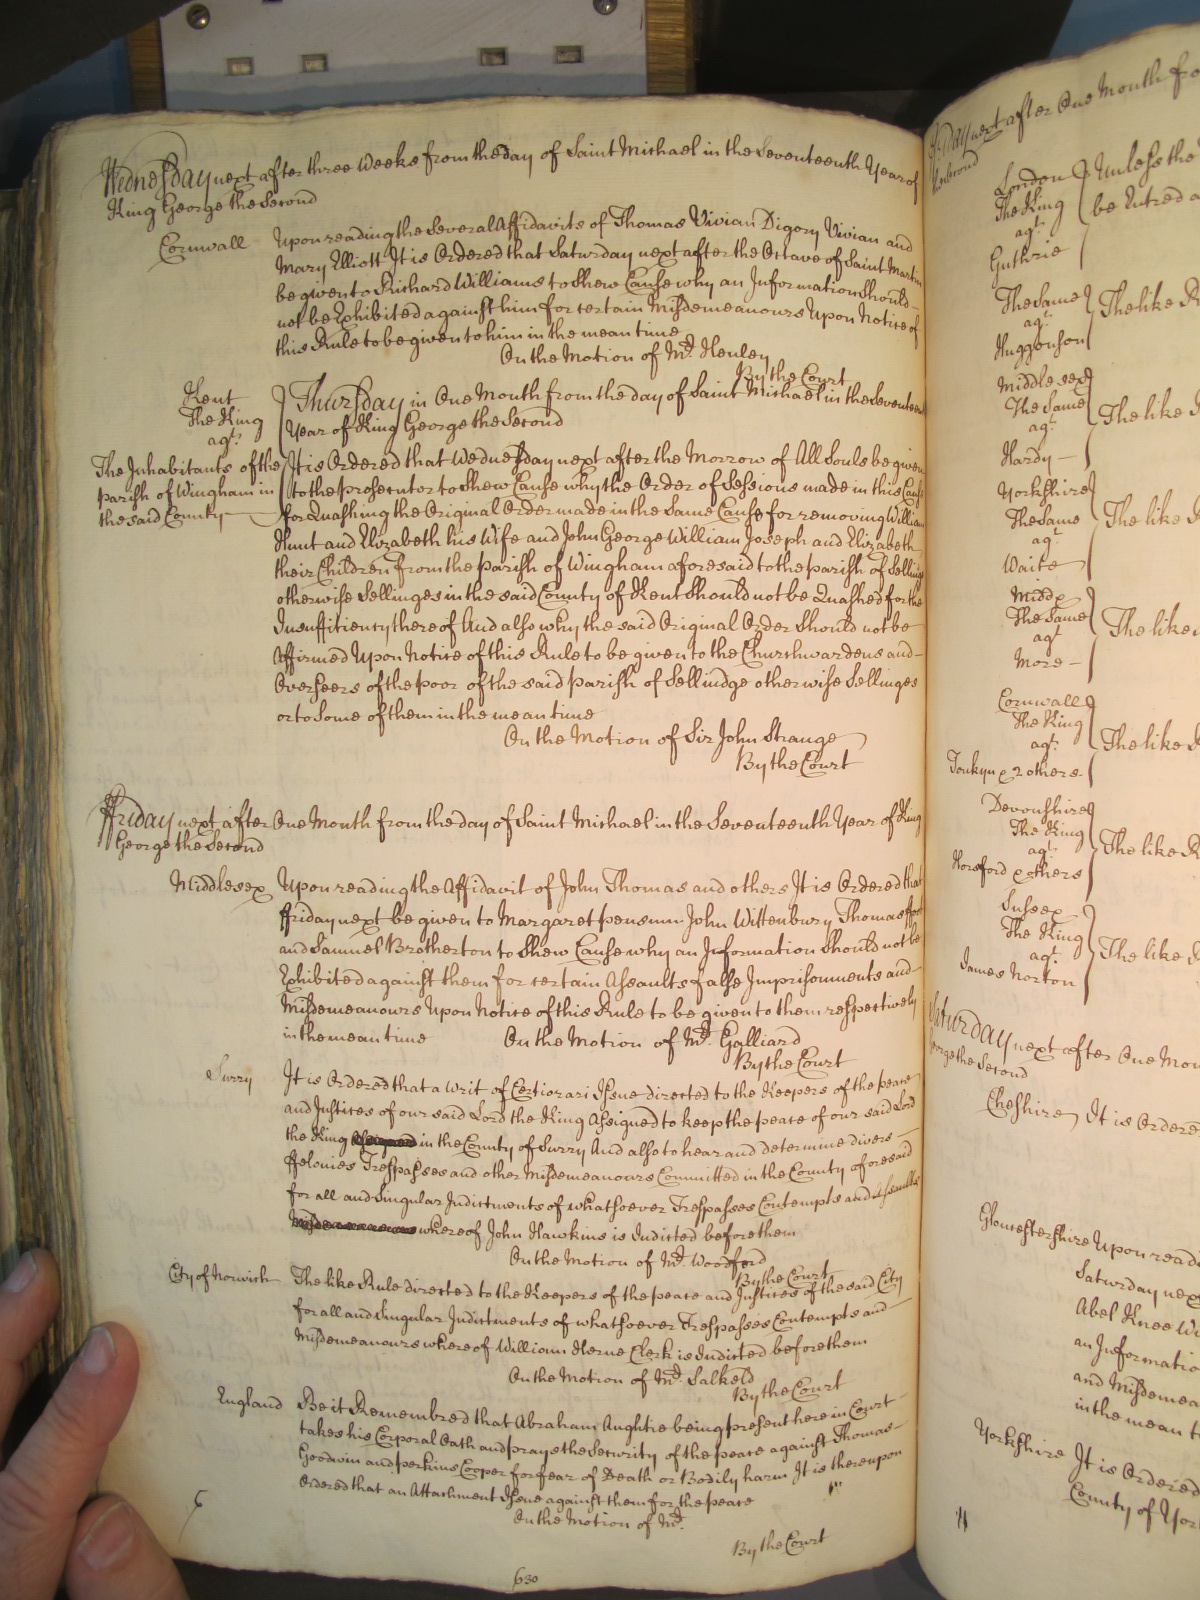 Wednesday next after three Weeks from the day of Saint Michael in the Seventeenth Year of
King George the Second
Cornwall Upon reading the Several Affidavits of Thomas Vivian Digory Vivian and
Mary Elliott It is Ordered that Saturday next after the Octave of Saint Martin
be given to Richard Williams to Shew Cause why an Information Should
not be Exhibited against him for certain Misdemeanours Upon Notice of
this Rule to be given to him in the mean time
On the Motion of Mr. Henley
By the Court
Kent
The King
agt.
The Inhabitants of the
parish of Wingham in
the said County
Thursday in One Month from the day of Saint Michael in the Seventeen
Year of King George the Second
It is Ordered that Wednesday next after the Morrow of All Souls be given
to the prosecutor to Shew Cause why the Order of Sessions made in this Cause
for Quashing the Original Order made in the Same Cause for removing William
Hunt and Elizabeth his Wife and John George William Joseph and Elizabeth
their Children from the parish of Wingham aforesaid to the parish of Sellindge
otherwise Sellinges in the said County of Kent Should not be Quashed for the
Insuffitiency thereof And also why the said Original Order Should not be
Affirmed Upon Notice of this Rule to be given to the Churchwardens and
Overseers of the poor of the said parish of Sellindge otherwise Sellinges
or to Some of them in the mean time
On the Motion of Sir John Strange
By the Court
Ffriday next after One Month from the day of Saint Michael in the Seventeenth Year of King
George the Second
Middlesex Upon reading the Affidavit of John Thomas and others It is Ordered that
ffriday next be given to Margaret John Wittenbury Thomas
and Samuel Brotherton to Shew Cause why an Information Should not be
Exhibited against them for certain Assaults false Imprisonments and
Misdemeanours Upon Notice of this Rule to be given to them respectively
in the mean time On the Motion of Mr. Galliard
By the Court
Surry It is Ordered that a Writ of Certiorari Issue directed to the Keepers of the peace
and Justices of our said Lord the King Assigned to keep the peace of our said Lord
the King in the County of Surry And also to hear and determine divers
ffelonies Trespasses and other Misdemeanours Committed in the County aforesaid
for all and Singular Indictments of whatsoever Trespasses Contempts and Assaults
whereof John Hawkins is Indicted before them
On the Motion of Mr. Woodford
By the Court
City of Norwich The like Rule directed to the Keepers of the peace and Justices of the said City
for all and Singular Indictments of whatsoever Trespasses Contempts and
Misdemeanours whereof William Herne Clerk is Indicted before them
On the Motion of Mr. Salkeld
By the Court
England Be it Remembred that Abraham Aughtie being present here in Court
takes his Corporal Oath and prays the Security of the peace against Thomas
Goodwin and perkins Cooper for fear of Death or Bodily harm It is thereupon
Ordered that an Attachment Issue against them for the peace
On the Motion of Mr.
By the Court
630
ffriday next after One Month fro
the Second
London
The King
agt.
Guthrie
Unless the
be Entred a
The Same
agt.
Huggonson
The like R
Middlesex
The Same
agt.
Hardy
The like
Yorkshire
The Same
agt
Waite
The like R
Middx
The Same
agt
More
The like
Cornwall
The King
agt.
Tonkyn & 2 others
The like R
Devonshire
The King
agt.
Horsford & others
The like R
Sussex
The King
agt.
James Norton
The like
Saturday next after One Mon
George the Second
Cheshire It is Ordered
Gloucestershire Upon readi
Saturday next
Abel Knee
an Informatio
and Misdemea
in the mean t
Yorkshire It is Ordered
County of York